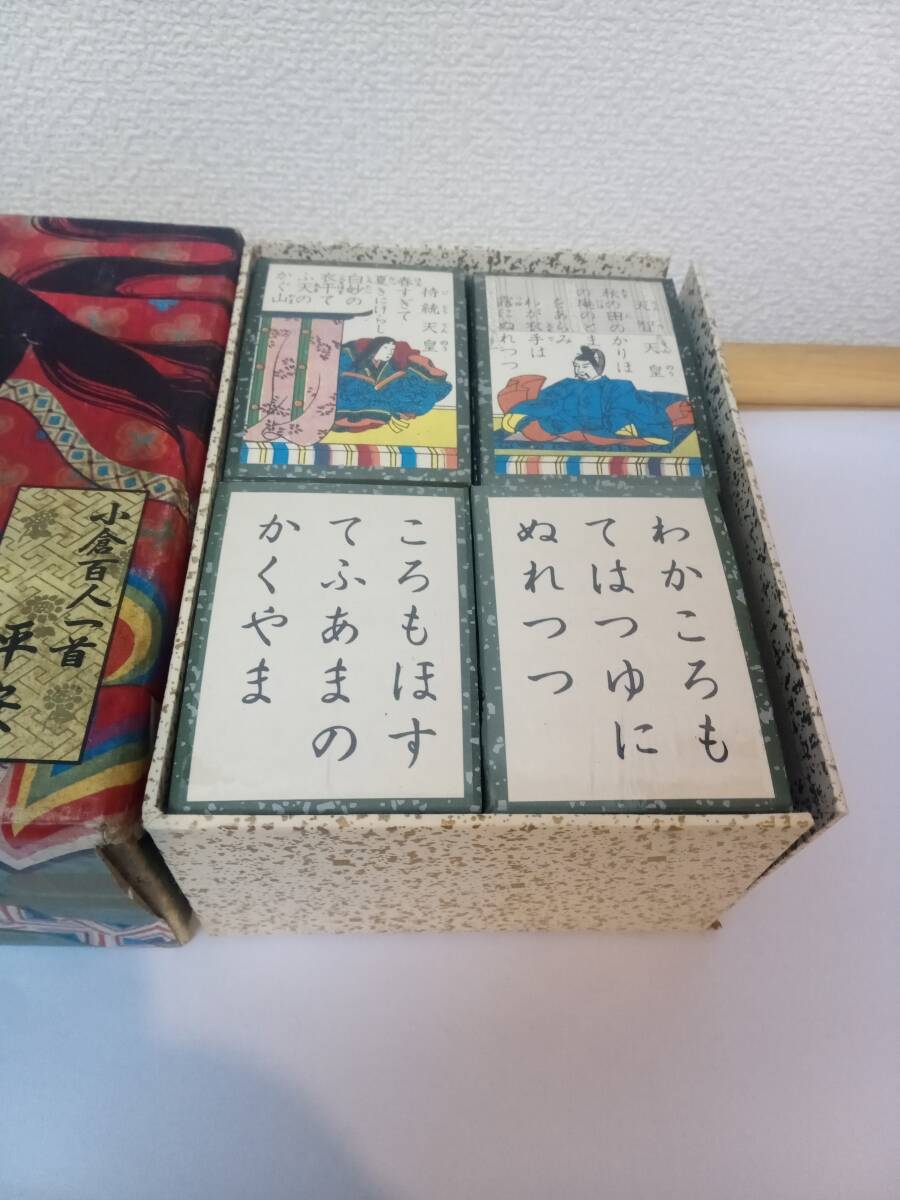 持統天皇
春すぎて
夏きにけらし
白妙の
衣干て
ふ天の
かぐ山
天智天皇
秋の田のかりほ
の庵のとま
をあらみ
わが衣手は
露にぬれつつ
ころもほす
てふあまの
かくやま
わかころも
てはつゆに
ぬれつつ
小倉百人一首
平安